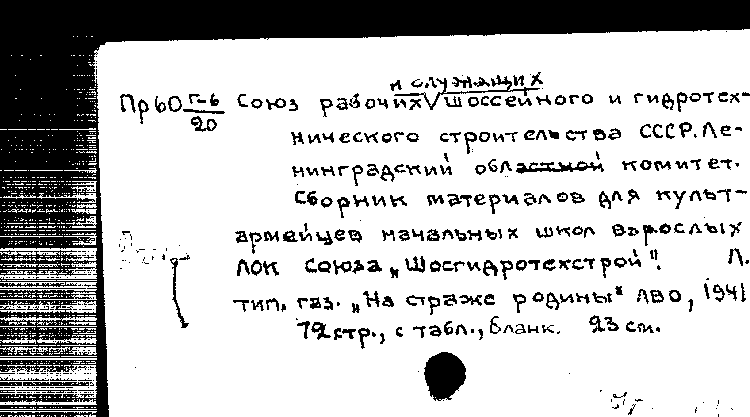 и служащих
Пр60 Г-6/20 Союз рабочих√шоссейного и гидротех-
нического строительства СССР. Ле-
нинградский областной комитет.
Сборник материалов для культ-
армейцев начальных школ взрослых
ЛОК союза „Шосгидротехстрой". Л.
тип. газ. „На страже родины" ЛВО, 1941
72 стр., с табл., бланк. 23 см.